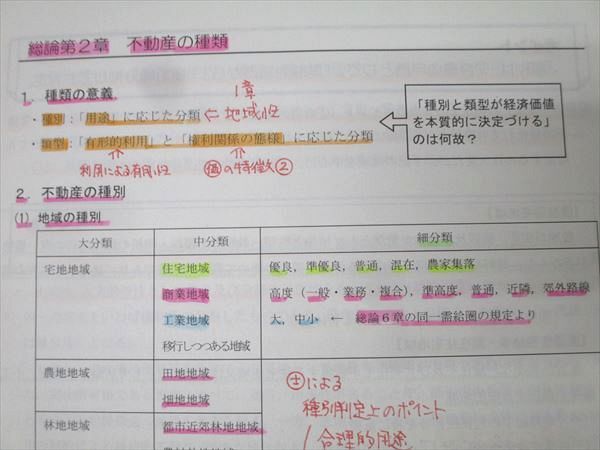 総論第2章 不動産の種類
1章
1. 種類の意義
・種別：「用途」に応じた分類 ← 地域性
・類型：「有形的利用」と「権利関係の態様」に応じた分類
「種別と類型が経済価値
を本質的に決定づける」
のは何故？
利用による有用性
価の特徴②
2. 不動産の種別
(1) 地域の種別
大分類 中分類 細分類
宅地地域 住宅地域 優良，準優良，普通，混在，農家集落
商業地域 高度（一般・業務・複合），準高度，普通，近隣，郊外路線
工業地域 大，中小 ← 総論6章の同一需給圏の規定より
移行しつつある地域
農地地域 田地地域
畑地地域
土による
種別判定上のポイント
林地地域 都市近郊林地地域
合理的用途